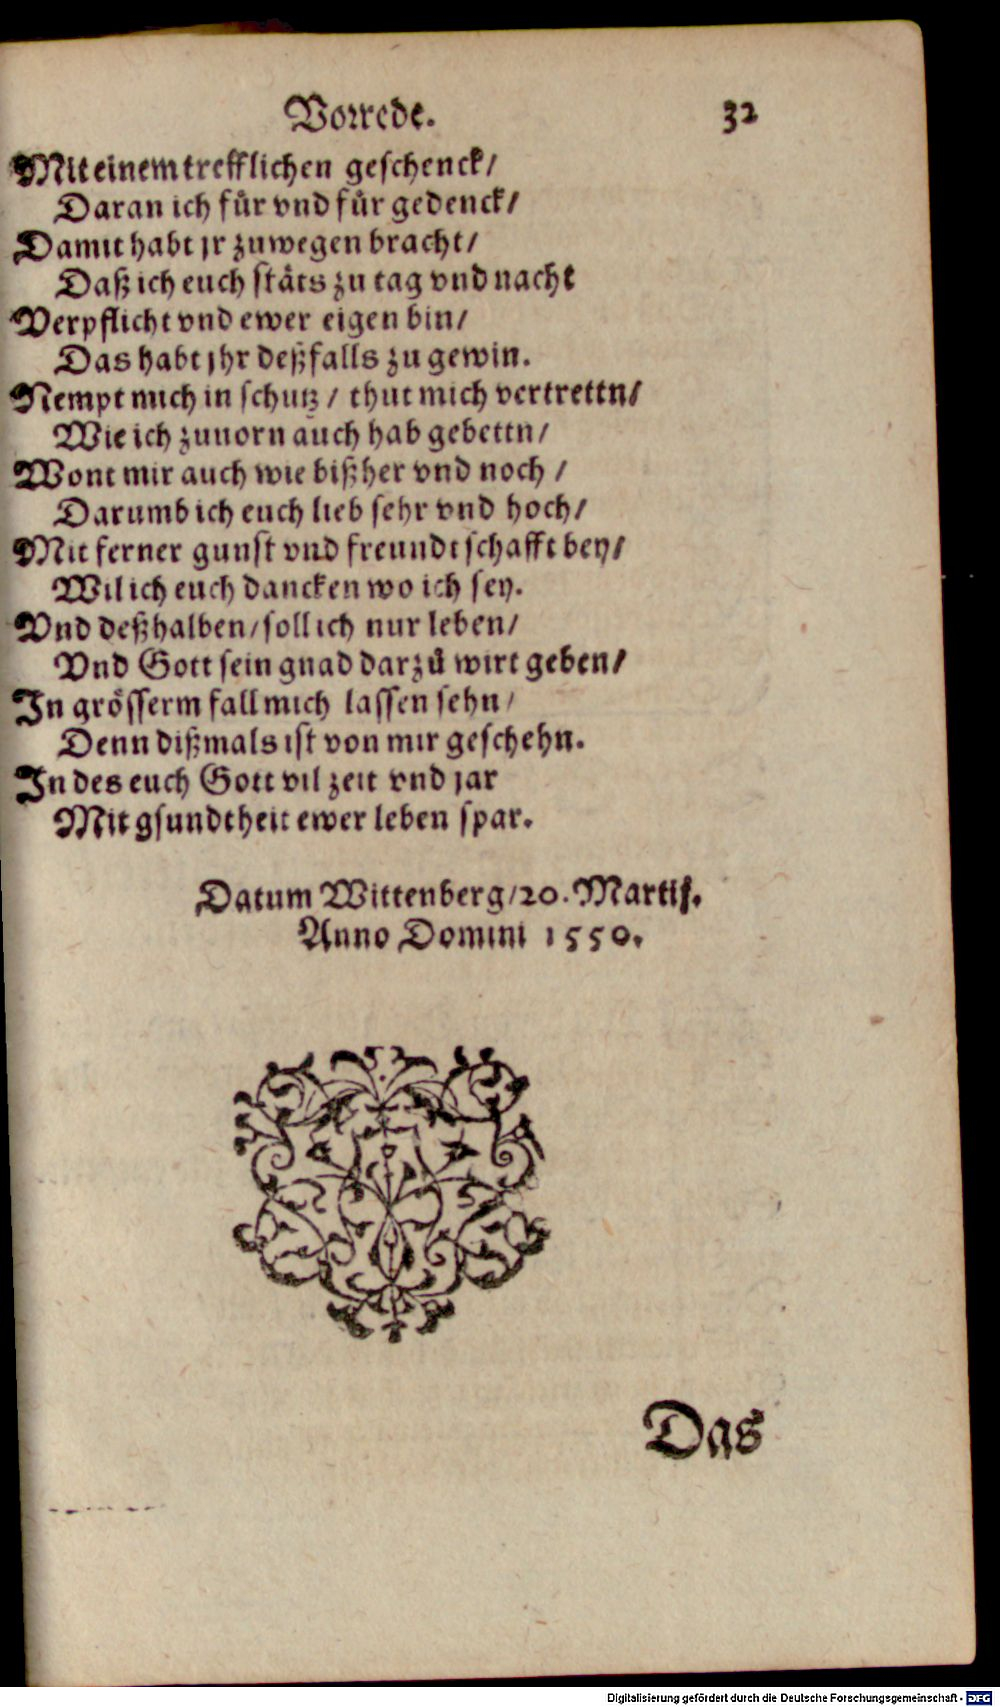 Vorrede. 32
Mit einem trefflichen geschenck/
Daran ich für vnd für gedenck/
Damit habt jr zuwegen bracht/
Daß ich euch stäts zu tag vnd nacht
Verpflicht vnd ewer eigen bin/
Das habt jhr deßfalls zu gewin.
Nempt mich in schutz / thut mich vertrettn/
Wie ich zuuorn auch hab gebettn/
Wont mir auch wie bißher vnd noch /
Darumb ich euch lieb sehr vnd hoch/
Mit ferner gunst vnd freundtschafft bey/
Wil ich euch dancken wo ich sey.
Vnd deßhalben/ soll ich nur leben/
Vnd Gott sein gnad darzů wirt geben/
In grösserm fall mich lassen sehn/
Denn dißmals ist von mir geschehn.
In des euch Gott vil zeit vnd jar
Mit gsundtheit ewer leben spar.
Datum Wittenberg/ 20. Martij.
Anno Domini 1550.
Das
Digitalisierung gefördert durch die Deutsche Forschungsgemeinschaft - DFG